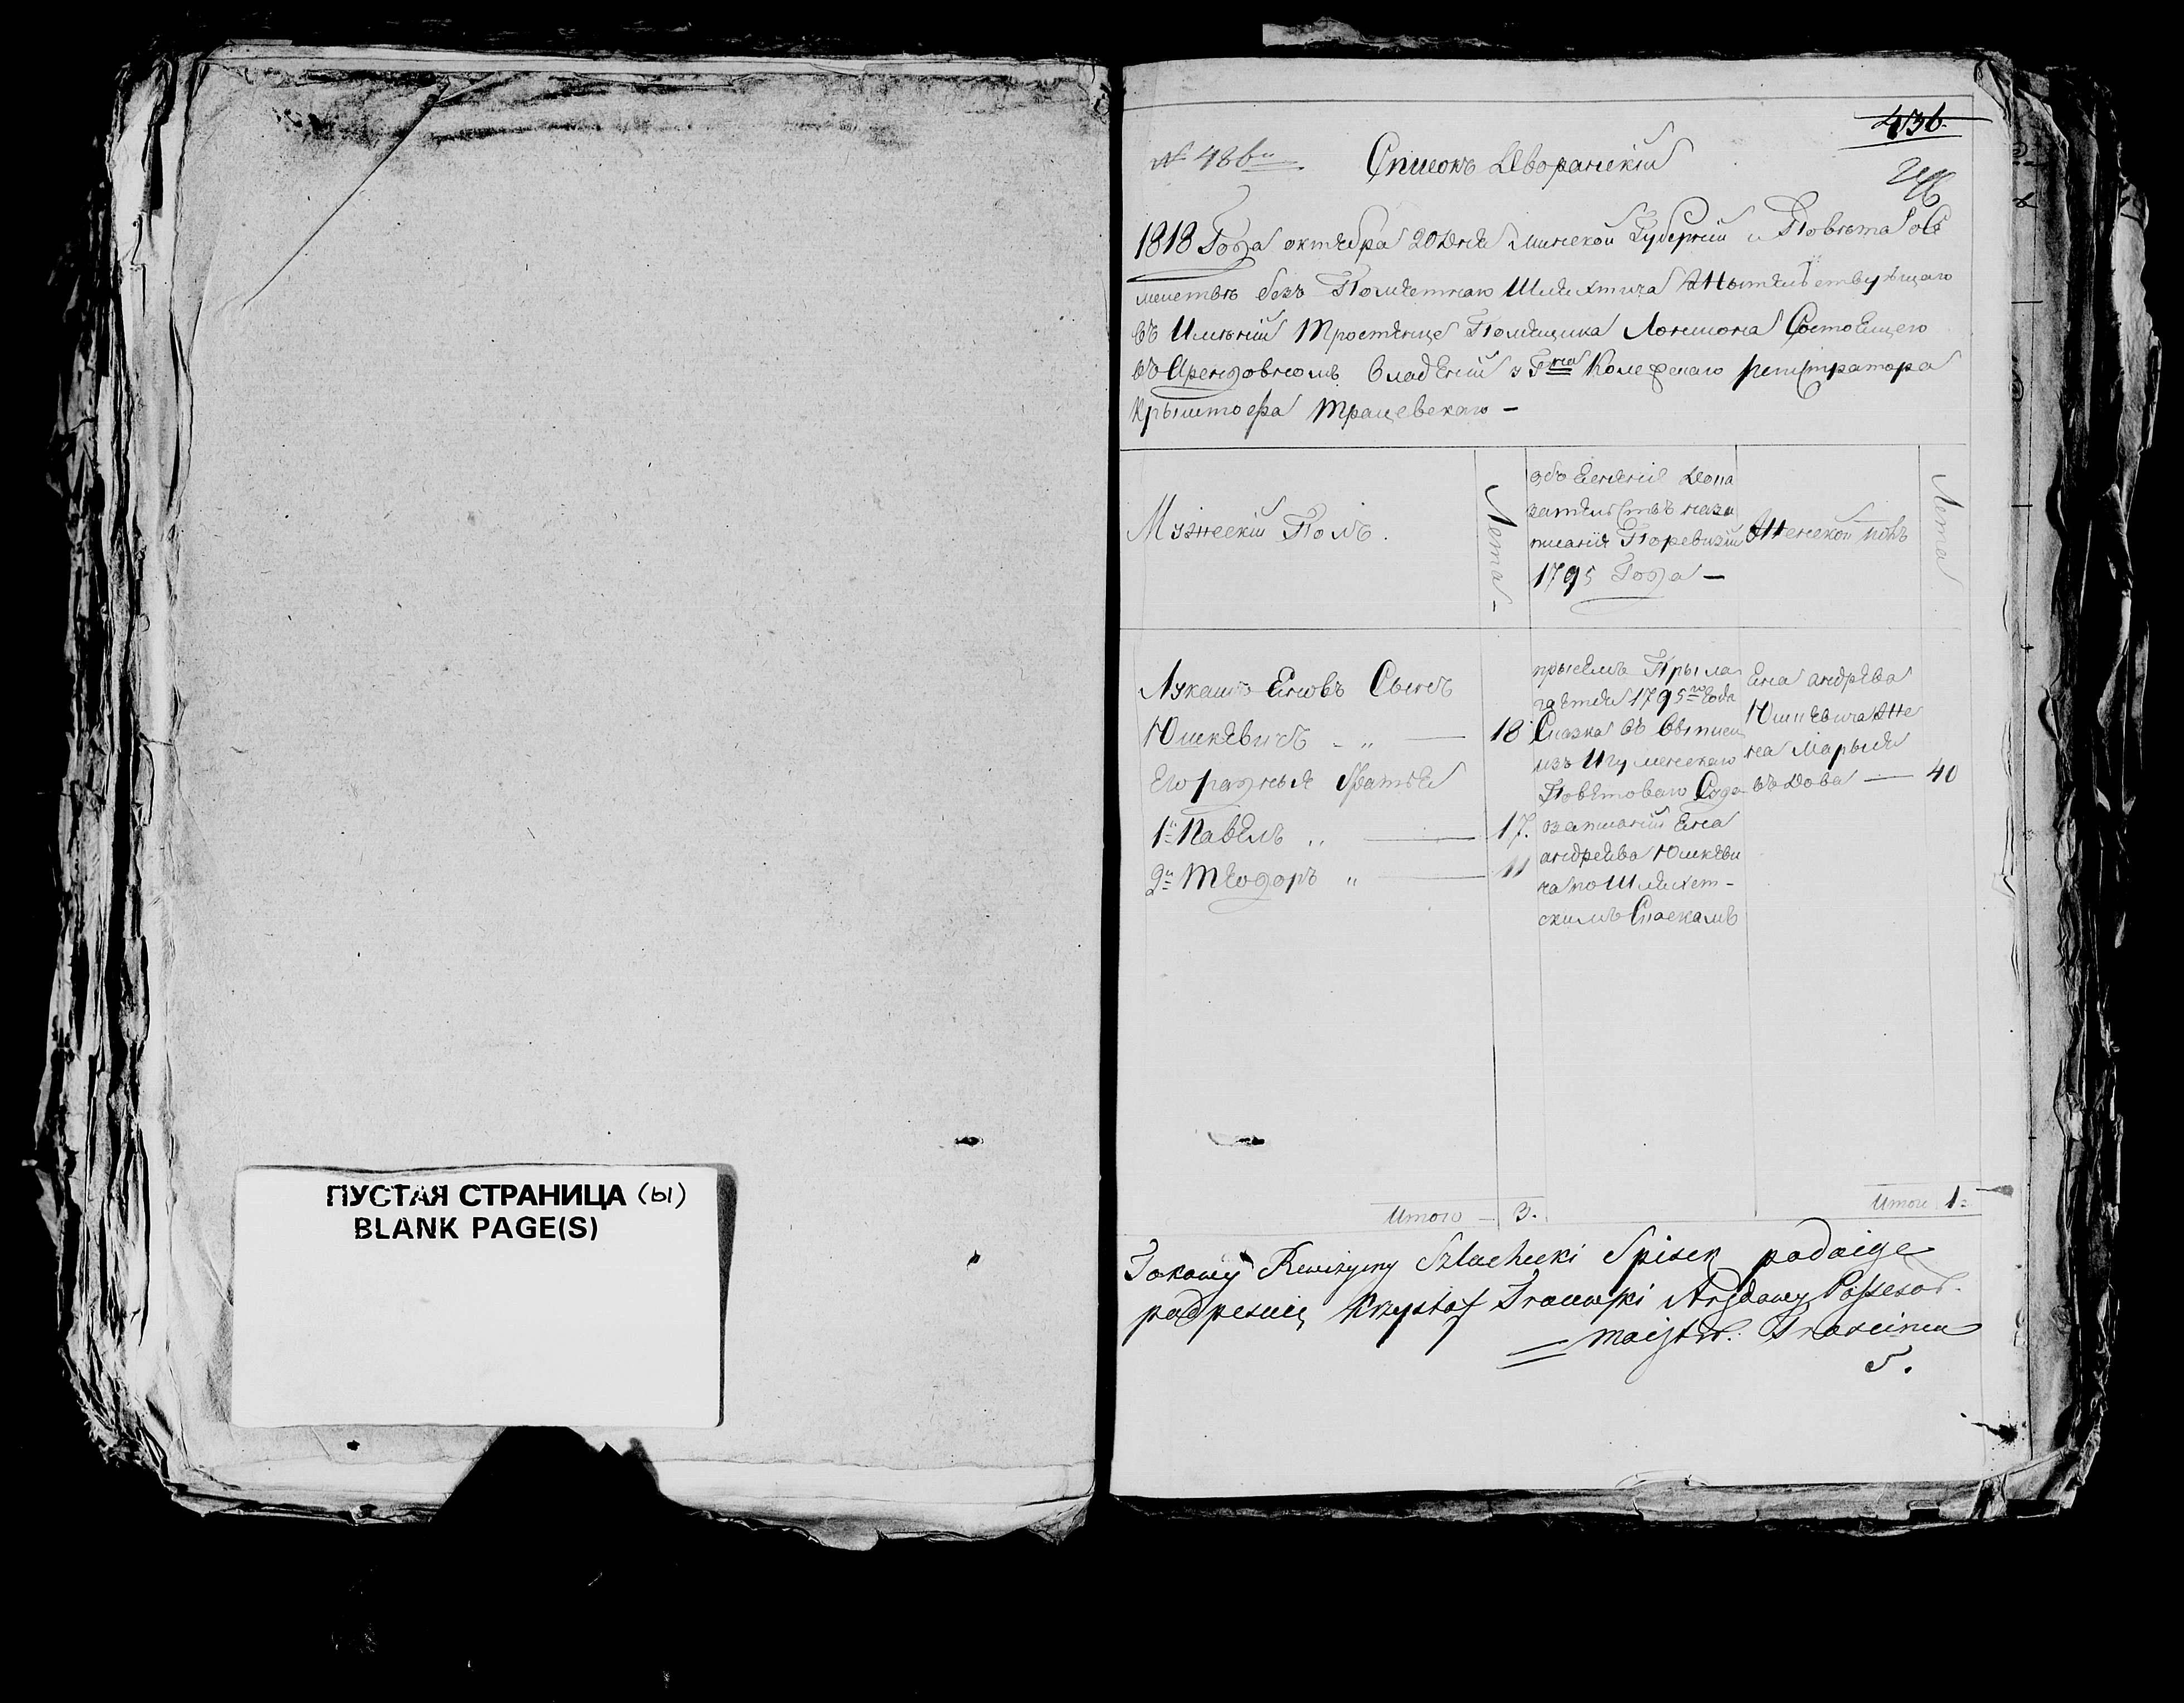 ПУСТАЯ СТРАНИЦА (ы)
BLANK PAGE(S)
436.
№ 486й Списокъ Дворанский
246
1818 Года октебра 20 Дне Минской Губерний и Повъта об
менствъ безъ Поместнаго Шлехтича Жытелствующаго
въ Имъний Тростенце Помещика Состоещего
въ Арендовномъ Владений у Гна Колежскаго регистратора
Крыштофа Трацевскаго —
Мужеский Полъ.
Лета —
объ Еснение Дока
зателствъ каза
писание Поревизии
1795 Года —
Женской полъ
Лета
Лукашъ Еновъ Сынъ
Юшкевичъ - „ — 18
Его родные братье
1й Павелъ „ — 17.
2й Теодоръ „ — 11
присемъ Прыла
гаетсе 1795го Года
Сказка въ выписи
изъ Игуменскаго
Поветоваго Суда
озаписании Ена
андреева Юшкеви
ча по Шлехет-
скимъ Скаскамъ
Ена андрева
Юшкевича Же
на Марыя
въдова — 40
Итого — 3.
Итого 1.
Takowy Rewizyiny Szlachecki Spisek podaige
podpesuię Krzysztof Tracewski Arędowny Possesor.
maiętn. Trascinca